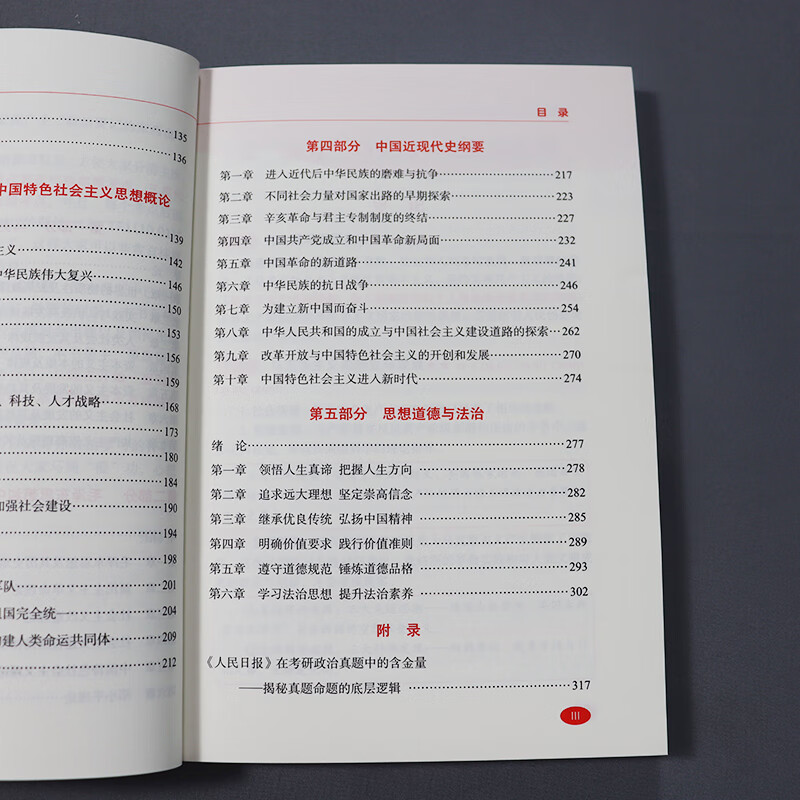 135
136
中国特色社会主义思想概论
139
主义 142
中华民族伟大复兴 146
150
153
156
159
、科技、人才战略 168
173
180
184
加强社会建设 190
194
198
军队 201
祖国完全统一 204
构建人类命运共同体 209
212
目 录
第四部分 中国近现代史纲要
第一章 进入近代后中华民族的磨难与抗争 217
第二章 不同社会力量对国家出路的早期探索 223
第三章 辛亥革命与君主专制制度的终结 227
第四章 中国共产党成立和中国革命新局面 232
第五章 中国革命的新道路 241
第六章 中华民族的抗日战争 246
第七章 为建立新中国而奋斗 254
第八章 中华人民共和国的成立与中国社会主义建设道路的探索 262
第九章 改革开放与中国特色社会主义的开创和发展 270
第十章 中国特色社会主义进入新时代 274
第五部分 思想道德与法治
绪 论 277
第一章 领悟人生真谛 把握人生方向 278
第二章 追求远大理想 坚定崇高信念 282
第三章 继承优良传统 弘扬中国精神 285
第四章 明确价值要求 践行价值准则 289
第五章 遵守道德规范 锤炼道德品格 293
第六章 学习法治思想 提升法治素养 302
附 录
《人民日报》在考研政治真题中的含金量
——揭秘真题命题的底层逻辑 317
III